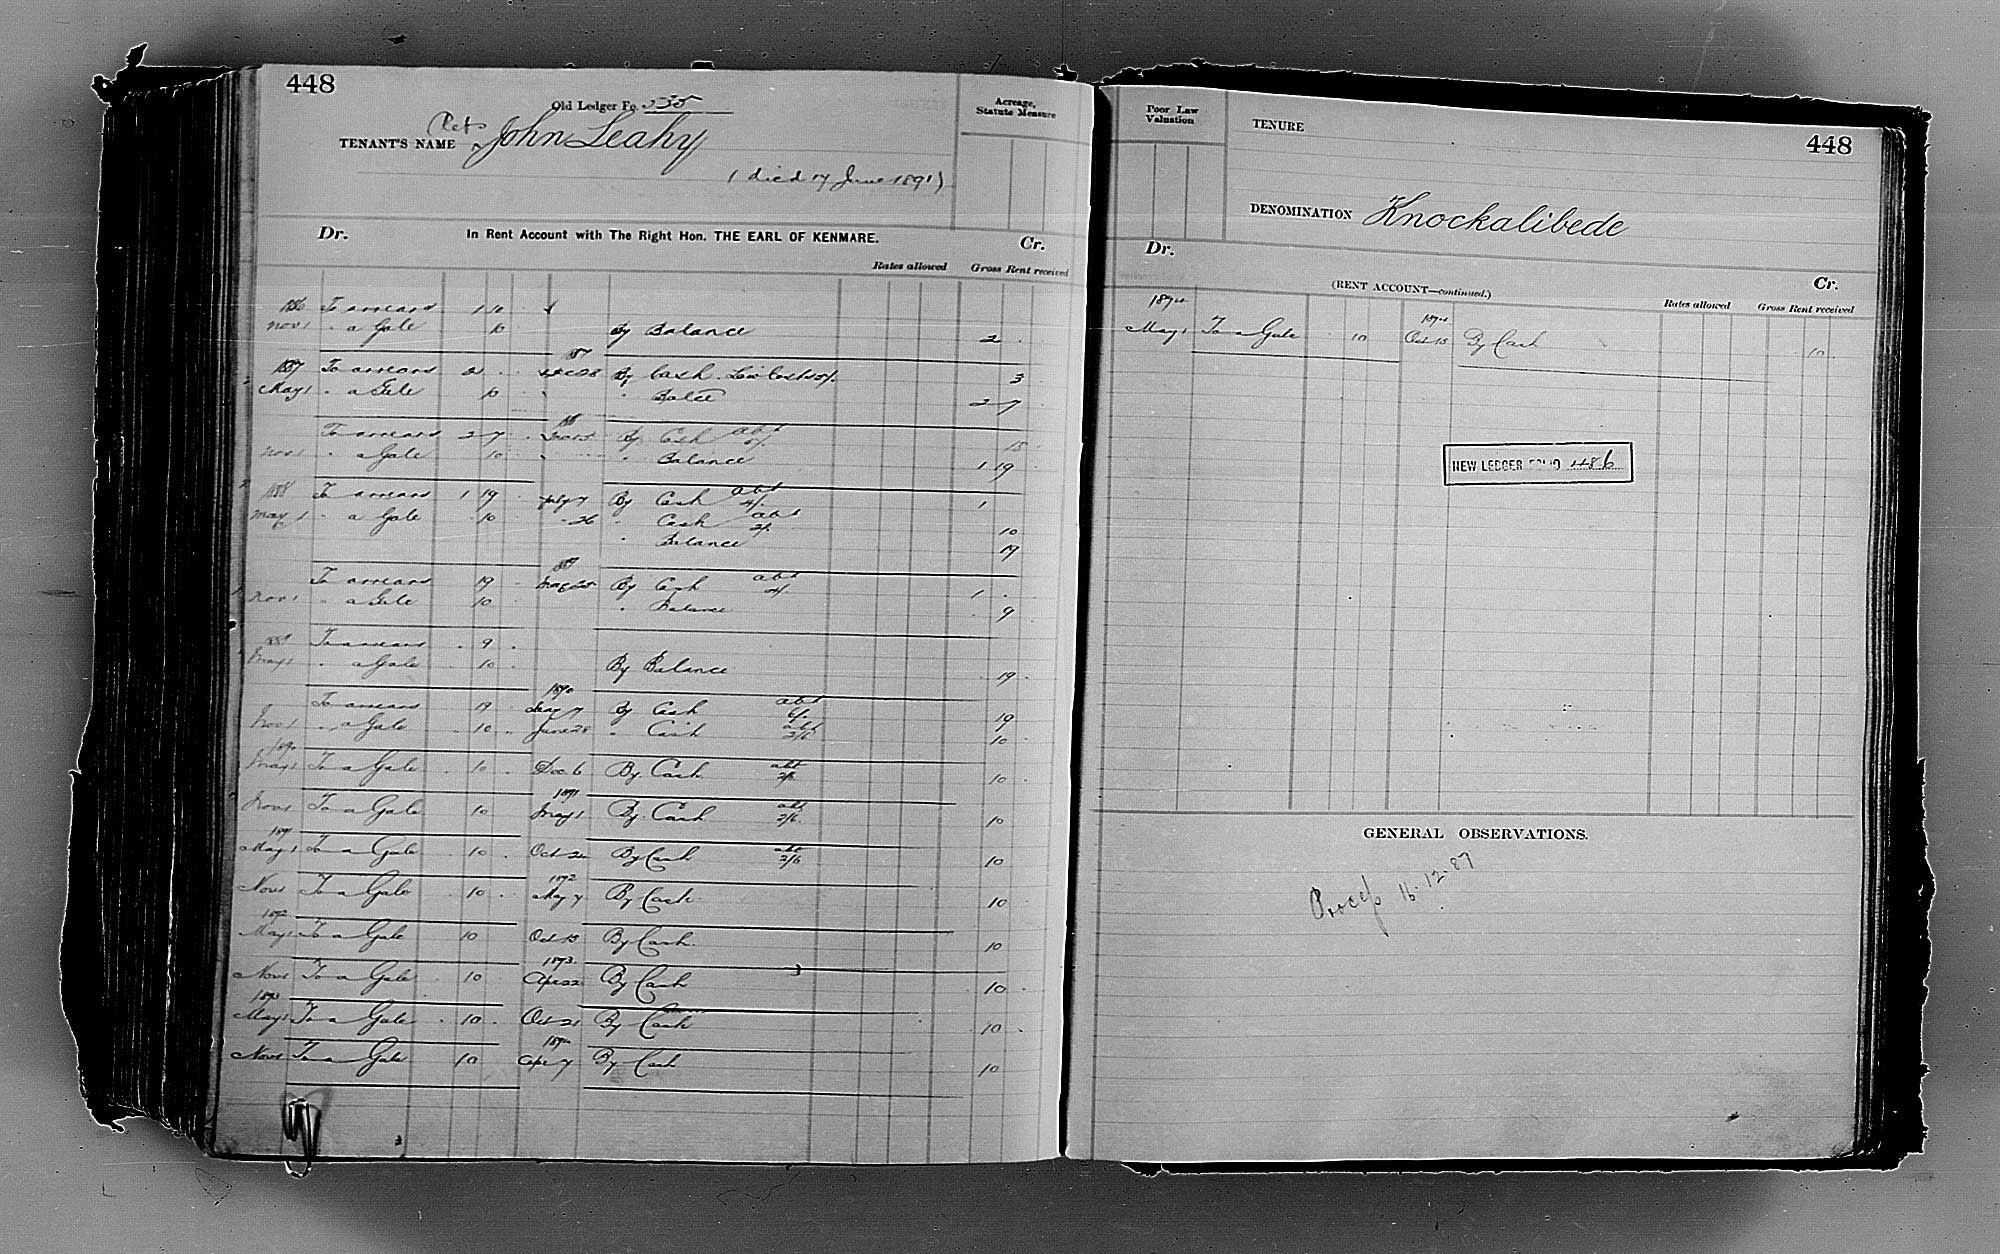 448
Old Ledger Fo. 335
Reps
TENANT'S NAME John Leahy
(died 17 June 1891)
Acreage,
Statute Measure
Dr. In Rent Account with The Right Hon. THE EARL OF KENMARE. Cr.
Rates allowed Gross Rent received
1886 To arrears 1 10
Nov 1 " a Gale 10 By Balance 2
87
1887 To arrears 2 Dec 28 By Cash 3
May 1 " a Gale 10 " Balce 2 7
88
To arrears 2 7 By Cash abt 5/. 18
Nov 1 " a Gale 10 " Balance 1 19
1888 To arrears 1 19 July 7 By Cash abt 4/. 1
May 1 " a Gale 10 " 26 " Cash abt 2/. 10
" Balance 19
889
To arrears 19 By Cash abt 4/. 1
Nov 1 " a Gale 10 " Balance 9
889 To arrears 9
May 1 " a Gale 10 By Balance 19
1890
To arrears 19 By Cash abt 19
Nov 1 " a Gale 10 June 28 " Cash abt 2/6 10
1890
May 1 To a Gale 10 Dec 6 By Cash abt 2/6 10
1891
Nov 1 To a Gale 10 May 1 By Cash abt 2/6 10
1891
May 1 To a Gale 10 Oct 24 By Cash abt 2/6 10
1892
Nov 1 To a Gale 10 May 7 By Cash 10
1892
May 1 To a Gale 10 Oct 15 By Cash 10
1893
Nov 1 To a Gale 10 Apr 22 By Cash 10
1893
May 1 To a Gale 10 Oct 21 By Cash 10
1894
Nov 1 To a Gale 10 Apr 7 By Cash 10
Poor Law
Valuation
TENURE
448
DENOMINATION Knockalibede
Dr.
(RENT ACCOUNT—continued.)
Cr.
Rates allowed Gross Rent received
1894 1894
May 1 To a Gale 10 Oct 13 By Cash 10
NEW LEDGER FOLIO 486
GENERAL OBSERVATIONS.
Process 16.12.87